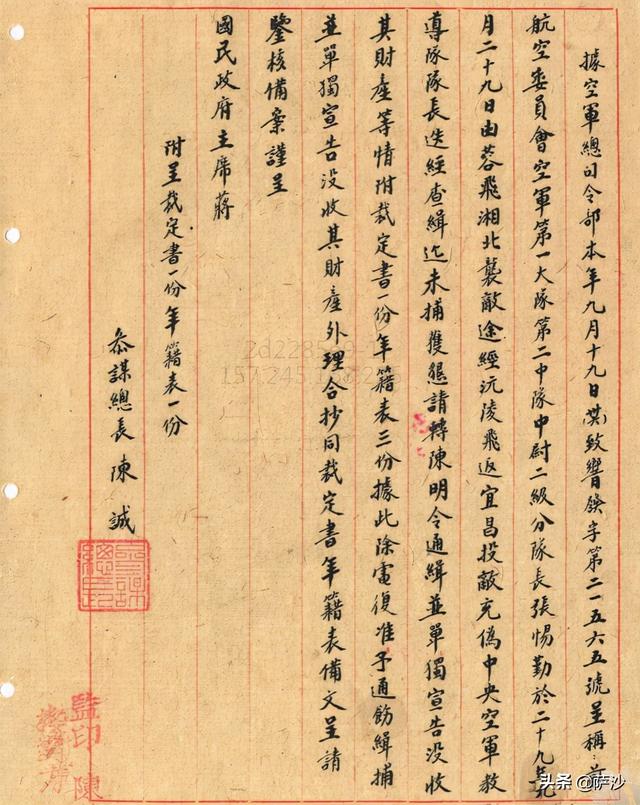 據空軍總司令部本年九月十九日 致嚮發字第二一五六五號呈稱:前
航空委員會空軍第一大隊第二中隊中尉二級分隊長張惕勤於二十九年九
月二十九日由蓉飛湘北襲敵途經沅陵飛返宜昌投敵充偽中央空軍教
導隊隊長迭經查緝迄未捕獲懇請轉陳明令通緝並單獨宣告没收
其財產等情附裁定書一份年籍表三份據此除電復准予通飭緝捕
並單獨宣告没收其財產外理合抄同裁定書年籍表備文呈請
鑒核備案謹呈
國民政府主席蔣
附呈裁定書一份年籍表一份
参謀總長陳誠
參謀總長
監印陳
頭条 @萨沙